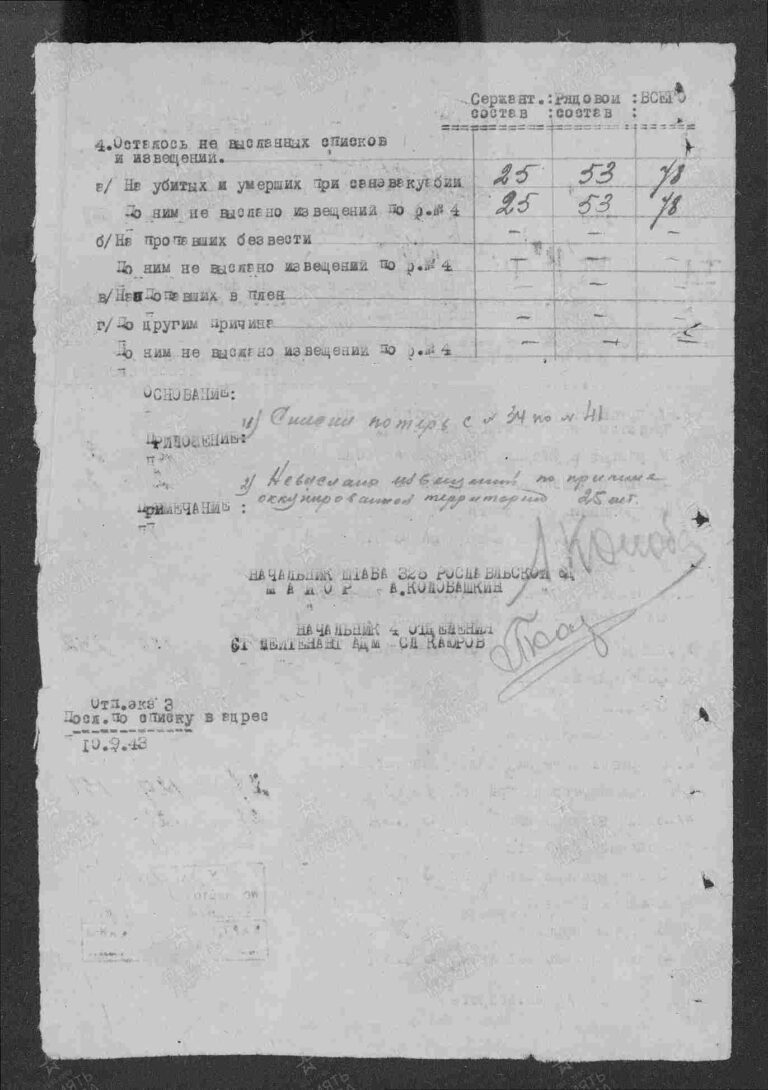 Сержант.:Рядовой :ВСЕГО
состав :состав :
4.Осталось не высланных списков
и извещений.
а/ На убитых и умерших при санэвакуации 25 53 78
По ним не выслано извещений по ф.№ 4 25 53 78
б/ На пропавших безвести - - -
По ним не выслано извещений по ф.№ 4 - - -
в/ На попавших в плен - - -
г/ По другим причина - -
По ним не выслано извещений по ф.№ 4 - - -
ОСНОВАНИЕ:
1) Списки потерь с № 34 по № 41
ПРИЛОЖЕНИЕ:
2) Невыслано извещений по причине
оккупированной территории 25 шт.
ПРИМЕЧАНИЕ :
НАЧАЛЬНИК ШТАБА 325 РОСЛАВЛЬСКОЙ СД
М А Й О Р А.КОЛОВАШКИН
НАЧАЛЬНИК 4 ОТДЕЛЕНИЯ
СТ ЛЕЙТЕНАНТ АДМ СЛ КАЮРОВ
Отп.экз 3
Посл.по списку в адрес
10.9.43